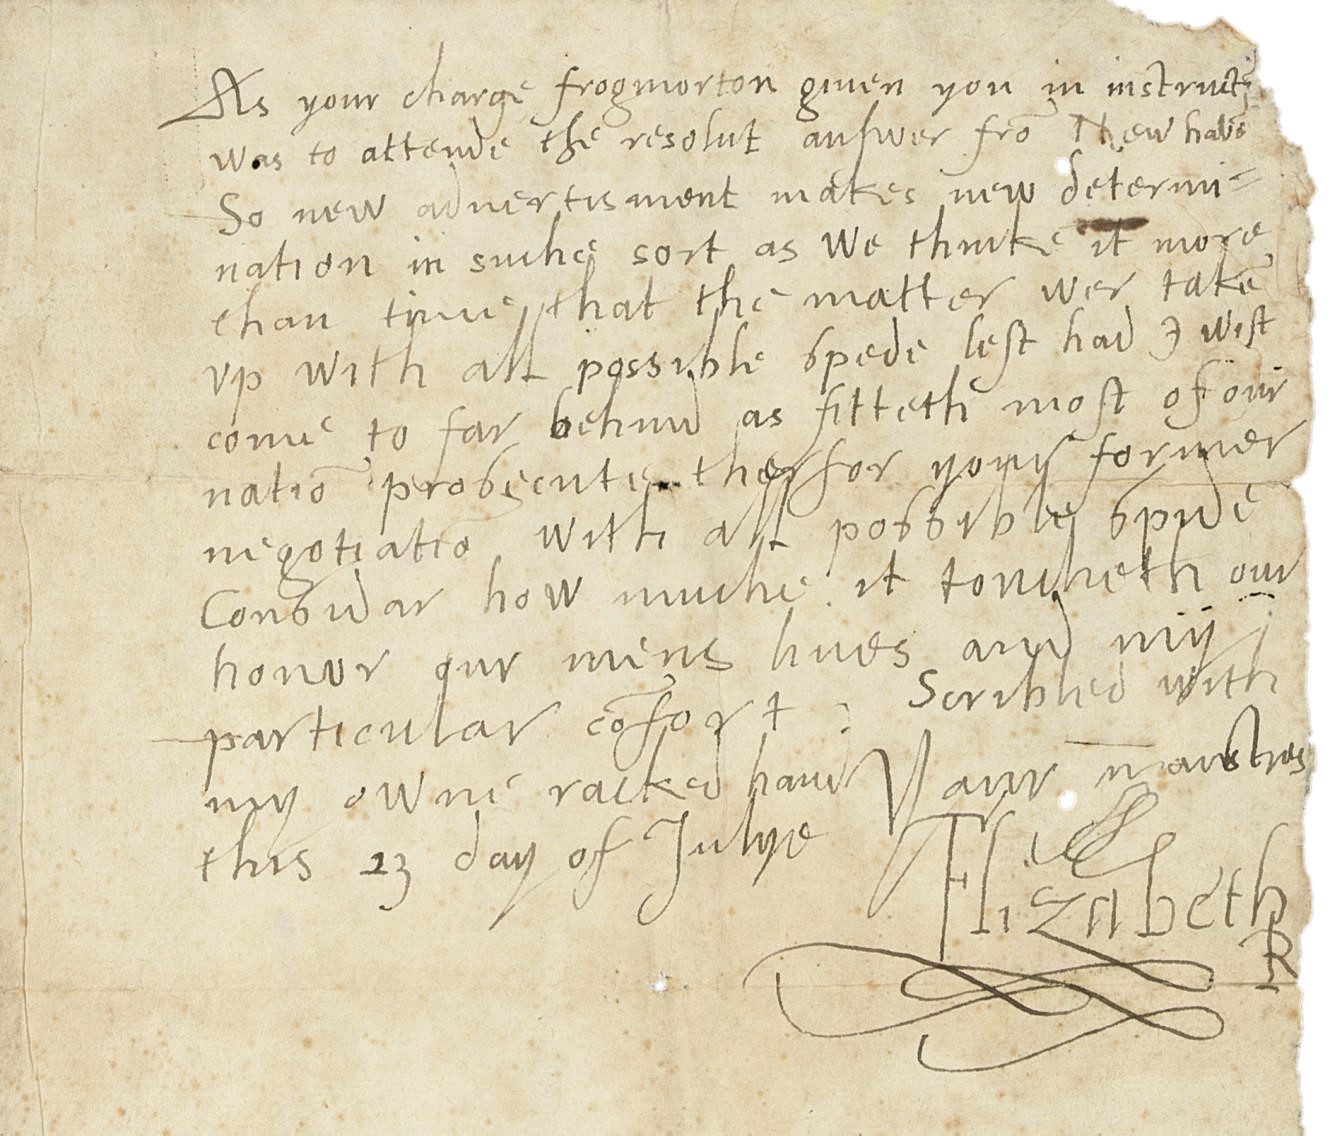 As your charge frogmorton giuen you in instructi
was to attende the resolut answer frō New havē
So new aduertisment makes new determi=
nation in suche sort as We thinke it more
than time that the matter wer takē
vp with all possible spede lest had I wist
come to far behind as fitteth most of our
natiō prosecute therfor your former
negotiatiō with all possible spide
Considar how muche it toucheth our
honor our mens liues and my
particular cōfort : Scribled with
my owne racked hand Your maistres
this 23 day of Julye
Elizabeth
R